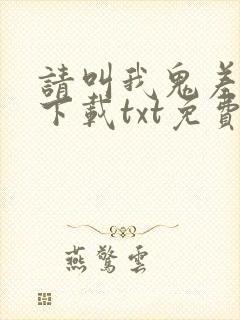 請叫我鬼差
下載txt免費
燕驚雲